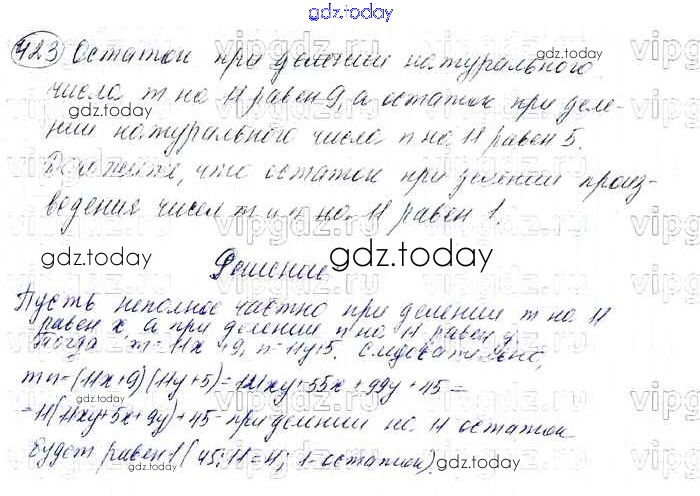 gdz.today
423) Остаток при делении натурального
числа m на 11 равен 9, а остаток при деле-
нии натурального числа n на 11 равен 5.
Докажите, что остаток при делении произ-
ведения чисел m и n на 11 равен 1.
Решение
Пусть неполное частно при делении m на 11
равен x, а при делении n на 11 равен y.
Тогда m=11x+9, n=11y+5. Следовательно,
mn=(11x+9)(11y+5)=121xy+55x+99y+45=
=11(11xy+5x+9y)+45-при делении на 11 остаток
будет равен 1 (45:11=4; 1-остаток).